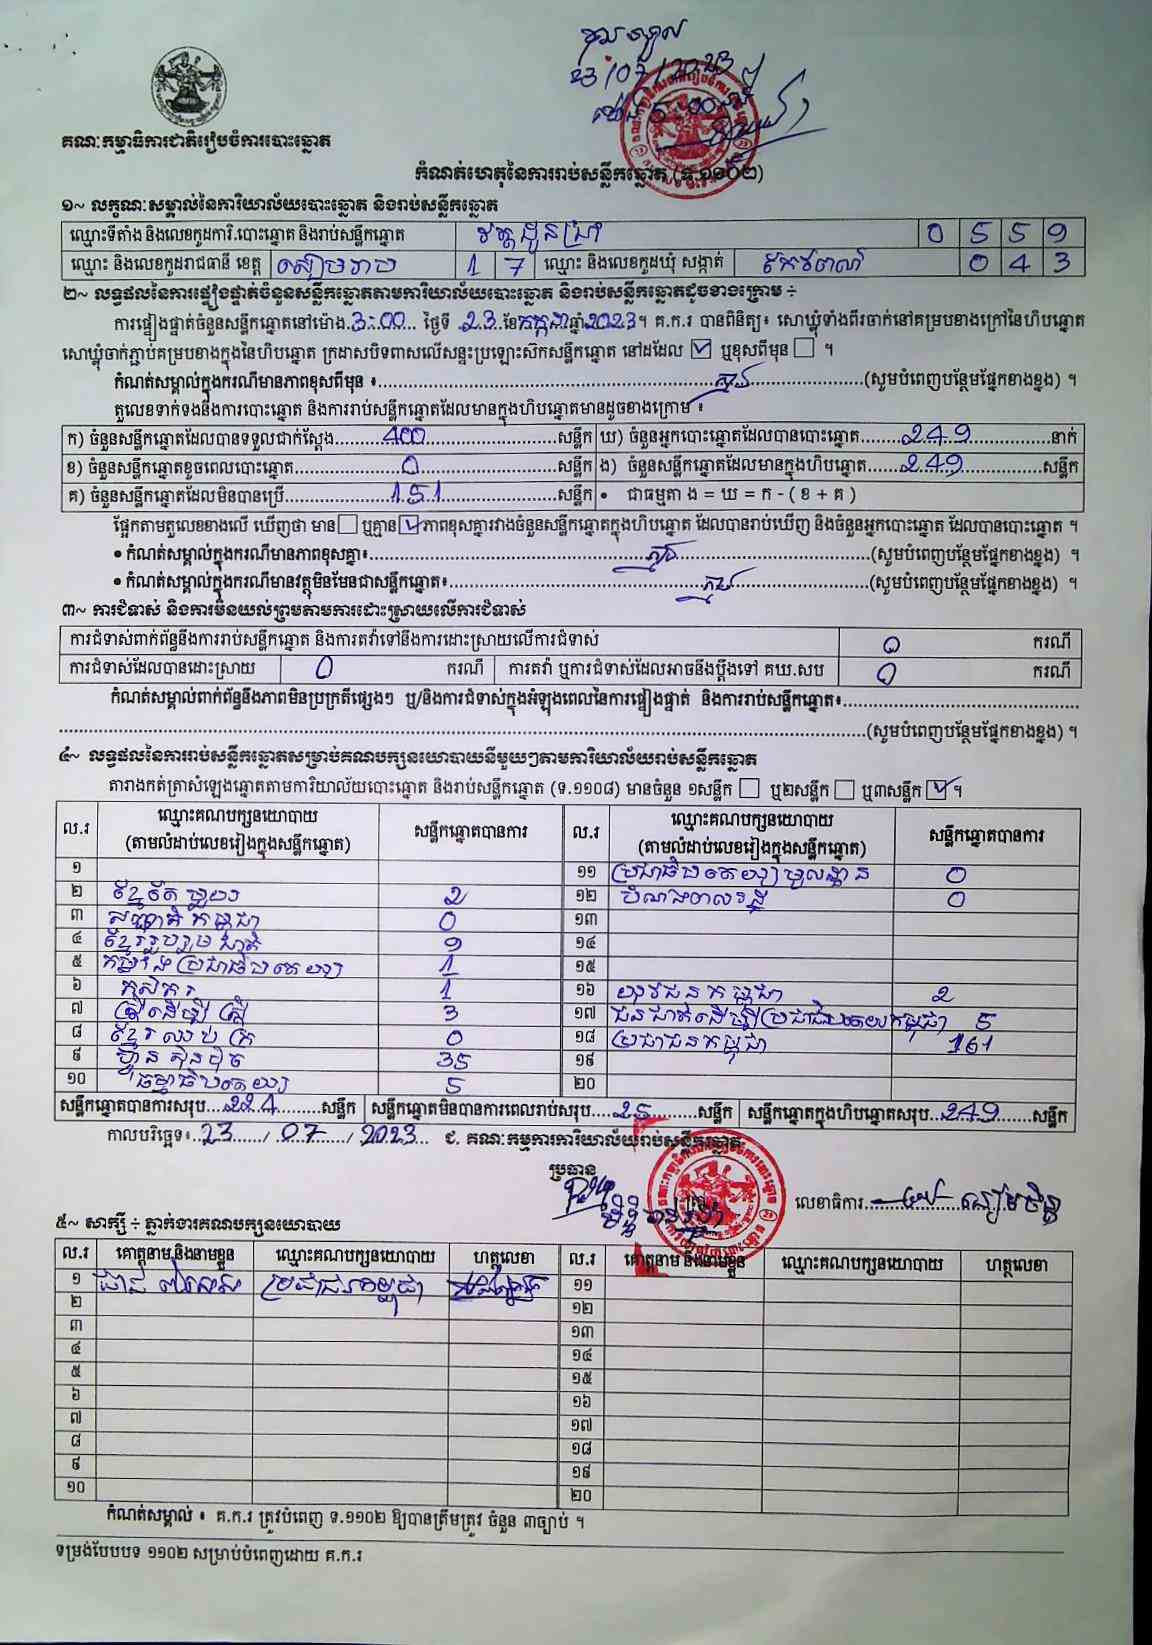 23/07/2023
គណៈកម្មាធិការជាតិរៀបចំការបោះឆ្នោត
កំណត់ហេតុនៃការរាប់សន្លឹកឆ្នោត (ទ.១១០២)
១~ លក្ខណៈសម្គាល់នៃការិយាល័យបោះឆ្នោត និងរាប់សន្លឹកឆ្នោត
ឈ្មោះទីតាំង និងលេខកូដការិ.បោះឆ្នោត និងរាប់សន្លឹកឆ្នោត វត្តដូនព្រះ 0 5 5 9
ឈ្មោះ និងលេខកូដរាជធានី ខេត្ត សៀមរាប 1 7 ឈ្មោះ និងលេខកូដឃុំ សង្កាត់ 0 4 3
២~ លទ្ធផលនៃការផ្ទៀងផ្ទាត់ចំនួនសន្លឹកឆ្នោតតាមការិយាល័យបោះឆ្នោត និងរាប់សន្លឹកឆ្នោតដូចខាងក្រោម ÷
ការផ្ទៀងផ្ទាត់ចំនួនសន្លឹកឆ្នោតនៅម៉ោង 3:00 ថ្ងៃទី 23 ខែកក្កដាឆ្នាំ2023។ គ.ក.រ បានពិនិត្យ៖ សោឃ្លុំទាំងពីរចាក់នៅគម្របខាងក្រៅនៃហិបឆ្នោត
សោឃ្លុំចាក់ភ្ជាប់គម្របខាងក្នុងនៃហិបឆ្នោត ក្រដាសបិទពាសលើសន្ទះប្រឡោះស៊កសន្លឹកឆ្នោត នៅដដែល ☑ ឬខុសពីមុន ☐ ។
កំណត់សម្គាល់ក្នុងករណីមានភាពខុសពីមុន ៖ គ្មាន (សូមបំពេញបន្ថែមផ្នែកខាងខ្នង) ។
តួលេខទាក់ទងនឹងការបោះឆ្នោត និងការរាប់សន្លឹកឆ្នោតដែលមានក្នុងហិបឆ្នោតមានដូចខាងក្រោម ៖
ក) ចំនួនសន្លឹកឆ្នោតដែលបានទទួលជាក់ស្តែង 400 សន្លឹក ឃ) ចំនួនអ្នកបោះឆ្នោតដែលបានបោះឆ្នោត 249 នាក់
ខ) ចំនួនសន្លឹកឆ្នោតខូចពេលបោះឆ្នោត 0 សន្លឹក ង) ចំនួនសន្លឹកឆ្នោតដែលមានក្នុងហិបឆ្នោត 249 សន្លឹក
គ) ចំនួនសន្លឹកឆ្នោតដែលមិនបានប្រើ 151 សន្លឹក • ជាធម្មតា ង = ឃ = ក - ( ខ + គ )
ផ្អែកតាមតួលេខខាងលើ ឃើញថា មាន ☐ ឬគ្មាន ☑ ភាពខុសគ្នារវាងចំនួនសន្លឹកឆ្នោតក្នុងហិបឆ្នោត ដែលបានរាប់ឃើញ និងចំនួនអ្នកបោះឆ្នោត ដែលបានបោះឆ្នោត ។
• កំណត់សម្គាល់ក្នុងករណីមានភាពខុសគ្នា៖ គ្មាន (សូមបំពេញបន្ថែមផ្នែកខាងខ្នង) ។
• កំណត់សម្គាល់ក្នុងករណីមានវត្ថុមិនមែនជាសន្លឹកឆ្នោត៖ គ្មាន (សូមបំពេញបន្ថែមផ្នែកខាងខ្នង) ។
៣~ ការជំទាស់ និងការមិនយល់ព្រមតាមការដោះស្រាយលើការជំទាស់
ការជំទាស់ពាក់ព័ន្ធនឹងការរាប់សន្លឹកឆ្នោត និងការតវ៉ាទៅនឹងការដោះស្រាយលើការជំទាស់ 0 ករណី
ការជំទាស់ដែលបានដោះស្រាយ 0 ករណី ការតវ៉ា ឬការជំទាស់ដែលអាចនឹងប្តឹងទៅ គឃ.សប 0 ករណី
កំណត់សម្គាល់ពាក់ព័ន្ធនឹងភាពមិនប្រក្រតីផ្សេងៗ ឬ/និងការជំទាស់ក្នុងអំឡុងពេលនៃការផ្ទៀងផ្ទាត់ និងការរាប់សន្លឹកឆ្នោត៖
(សូមបំពេញបន្ថែមផ្នែកខាងខ្នង) ។
៤~ លទ្ធផលនៃការរាប់សន្លឹកឆ្នោតសម្រាប់គណបក្សនយោបាយនីមួយៗតាមការិយាល័យរាប់សន្លឹកឆ្នោត
តារាងកត់ត្រាសំឡេងឆ្នោតតាមការិយាល័យបោះឆ្នោត និងរាប់សន្លឹកឆ្នោត (ទ.១១០៨) មានចំនួន ១សន្លឹក ☐ ឬ២សន្លឹក ☐ ឬ៣សន្លឹក ☑ ។
ល.រ ឈ្មោះគណបក្សនយោបាយ (តាមលំដាប់លេខរៀងក្នុងសន្លឹកឆ្នោត) សន្លឹកឆ្នោតបានការ ល.រ ឈ្មោះគណបក្សនយោបាយ (តាមលំដាប់លេខរៀងក្នុងសន្លឹកឆ្នោត) សន្លឹកឆ្នោតបានការ
១ ១១ ប្រជាធិបតេយ្យមូលដ្ឋាន 0
២ ខ្មែរតែមួយ 2 ១២ 0
៣ សញ្ជាតិកម្ពុជា 0 ១៣
៤ ខ្មែររួបរួមជាតិ 9 ១៤
៥ កម្លាំងប្រជាធិបតេយ្យ 1 ១៥
៦ កសិករ 1 ១៦ យុវជនកម្ពុជា 2
៧ ស្ត្រីដើម្បីស្ត្រី 3 ១៧ ជនជាតិដើម្បីប្រជាធិបតេយ្យកម្ពុជា 5
៨ ខ្មែរឈប់ក្រ 0 ១៨ ប្រជាជនកម្ពុជា 161
៩ ហ្វ៊ុនស៊ិនប៉ិច 35 ១៩
១០ ធម្មាធិបតេយ្យ 5 ២០
សន្លឹកឆ្នោតបានការសរុប 224 សន្លឹក សន្លឹកឆ្នោតមិនបានការពេលរាប់សរុប 25 សន្លឹក សន្លឹកឆ្នោតក្នុងហិបឆ្នោតសរុប 249 សន្លឹក
កាលបរិច្ឆេទ៖ 23 / 07 / 2023 ជ. គណៈកម្មការការិយាល័យរាប់សន្លឹកឆ្នោត
ប្រធាន
លេខាធិការ
៥~ សាក្សី ÷ ភ្នាក់ងារគណបក្សនយោបាយ
ល.រ គោត្តនាម និងនាមខ្លួន ឈ្មោះគណបក្សនយោបាយ ហត្ថលេខា ល.រ គោត្តនាម និងនាមខ្លួន ឈ្មោះគណបក្សនយោបាយ ហត្ថលេខា
១ ប្រជាជនកម្ពុជា ១១
២ ១២
៣ ១៣
៤ ១៤
៥ ១៥
៦ ១៦
៧ ១៧
៨ ១៨
៩ ១៩
១០ ២០
កំណត់សម្គាល់ ៖ គ.ក.រ ត្រូវបំពេញ ទ.១១០២ ឱ្យបានត្រឹមត្រូវ ចំនួន ៣ច្បាប់ ។
ទម្រង់បែបបទ ១១០២ សម្រាប់បំពេញដោយ គ.ក.រ